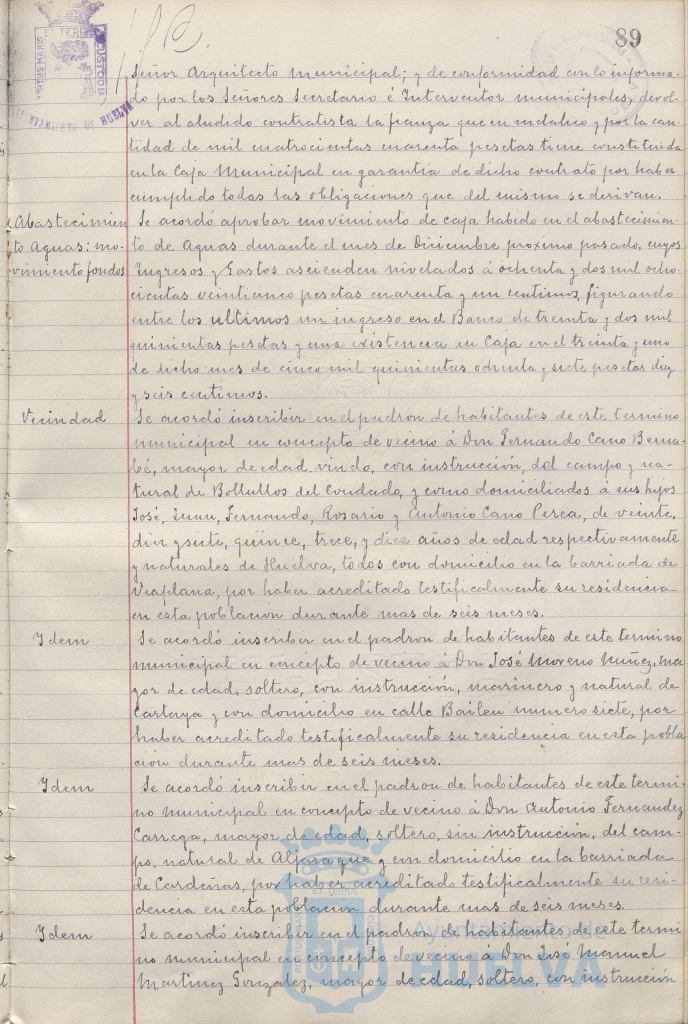 89
Señor Arquitecto Municipal; y de conformidad con lo informa-
do por los Señores Secretario é Interventor municipales, devol-
ver al aludido contratista la fianza que en metalico y por la can-
tidad de mil cuatrocientas cuarenta pesetas tiene constituida
en la Caja Municipal en garantia de dicho contrato por haber
cumplido todas las obligaciones que del mismo se derivan.
Abastecimien-
to Aguas: mo-
vimiento fondos
Se acordó aprobar movimiento de caja habido en el abastecimien-
to de Aguas durante el mes de Diciembre proximo pasado, cuyos
Ingresos y Gastos ascienden nivelados á ochenta y dos mil ocho-
cientas veinticinco pesetas cuarenta y un centimos, figurando
entre los ultimos un ingreso en el Banco de treinta y dos mil
quinientas pesetas y una existencia en Caja en el treinta y uno
de dicho mes de cinco mil quinientas ochenta y siete pesetas diez
y seis centimos.
Vecindad
Se acordó inscribir en el padron de habitantes de este termino
municipal en concepto de vecino á Don Fernando Cano Berna-
bé, mayor de edad, viudo, con instrucción, del campo y na-
tural de Bollullos del Condado, y como domiciliados á sus hijos
José, Juan, Fernando, Rosario y Antonio Cano Perea, de veinte,
diez y siete, quince, trece, y diez años de edad respectivamente
y naturales de Huelva, todos con domicilio en la barriada de
Viaplana, por haber acreditado testificalmente su residencia
en esta poblacion durante mas de seis meses.
Idem
Se acordó inscribir en el padron de habitantes de este termino
municipal en concepto de vecino á Don José Moreno Nuñez, ma-
yor de edad, soltero, con instrucción, marinero y natural de
Cartaya y con domicilio en calle Bailen numero siete, por
haber acreditado testificalmente su residencia en esta pobla
cion durante mas de seis meses.
Idem
Se acordó inscribir en el padron de habitantes de este termi-
no municipal en concepto de vecino á Don Antonio Fernandez
Carrega, mayor de edad, soltero, sin instrucción, del cam-
po, natural de Aljaraque y con domicilio en la barriada
de Cardeñas, por haber acreditado testificalmente su resi-
dencia en esta poblacion durante mas de seis meses.
Idem
Se acordó inscribir en el padron de habitantes de este termi
no municipal en concepto de vecino á Don José Manuel
Martinez Gonzalez, mayor de edad, soltero, con instrucción
Ayuntamiento de
HUELVA